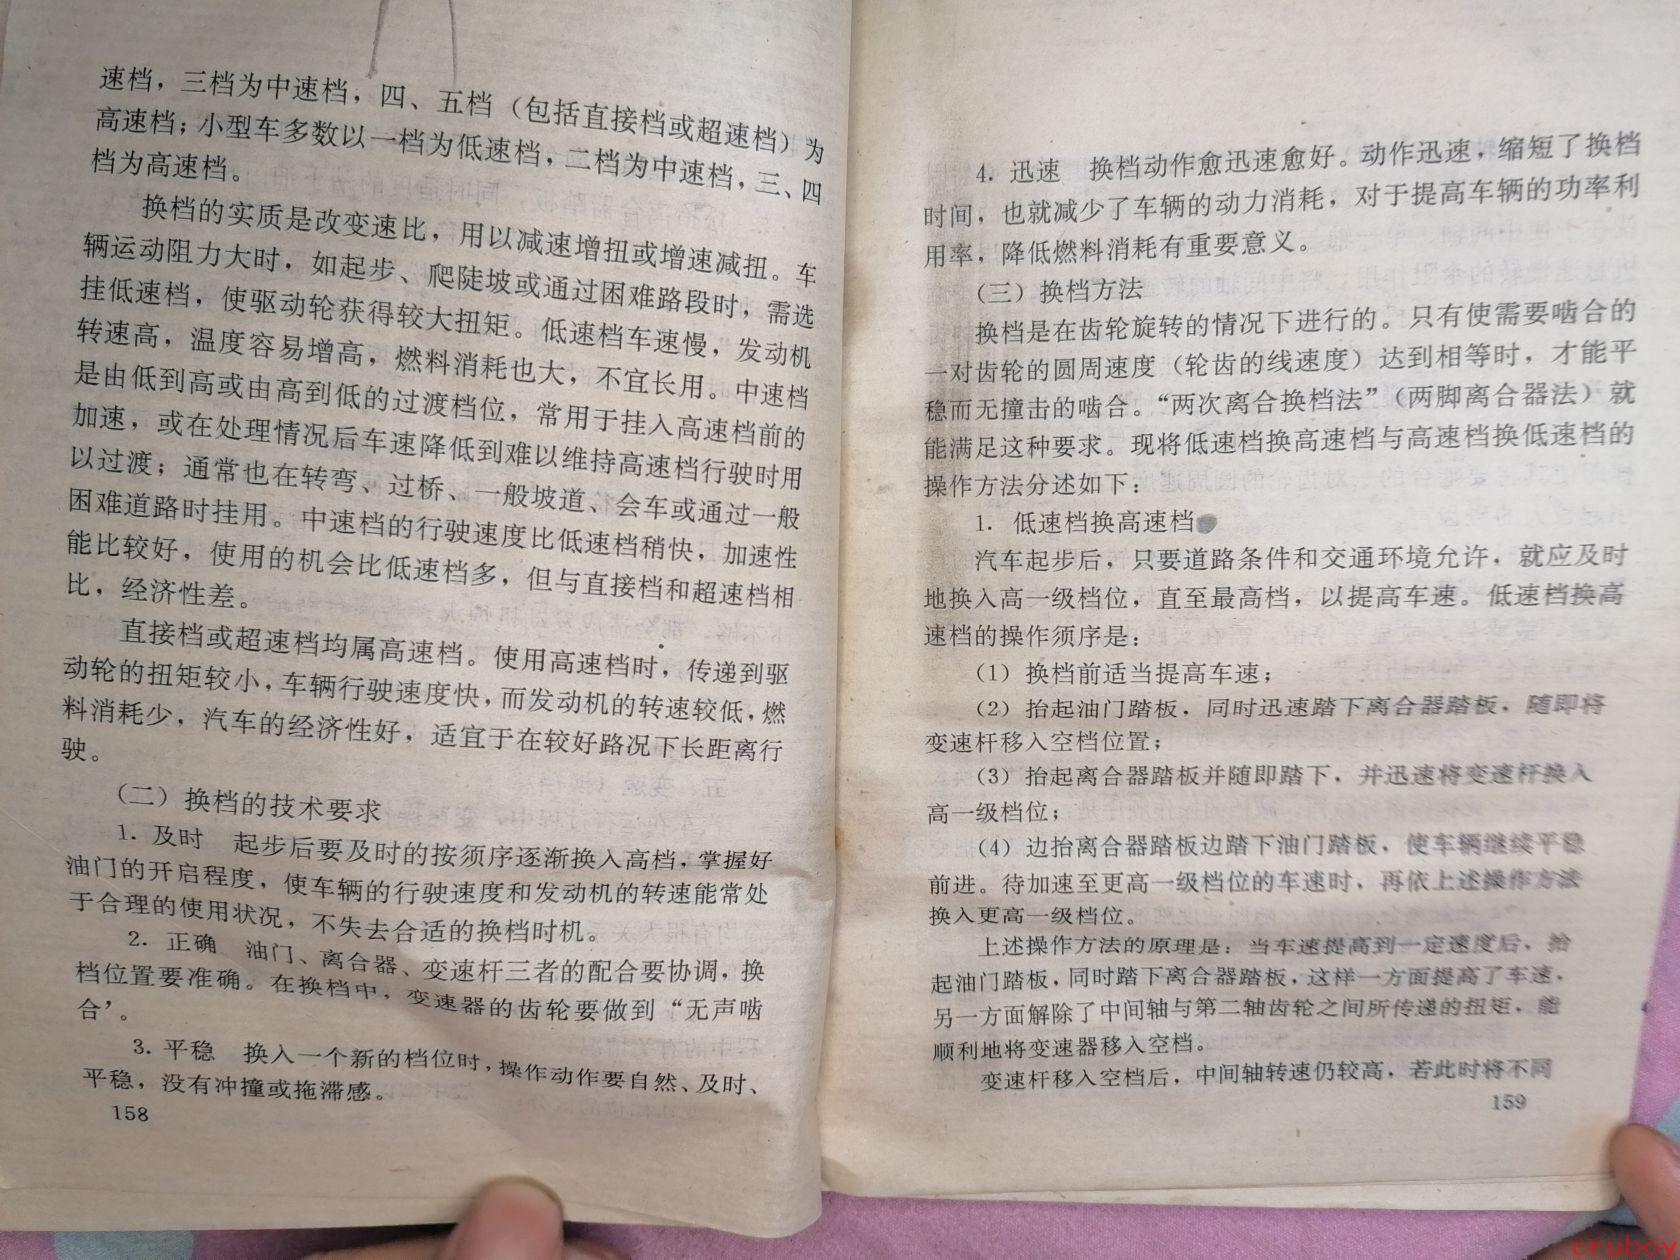 速档，三档为中速档，四、五档（包括直接档或超速档）为
高速档；小型车多数以一档为低速档，二档为中速档，三、四
档为高速档。
换档的实质是改变速比，用以减速增扭或增速减扭。车
辆运动阻力大时，如起步、爬陡坡或通过困难路段时，需选
挂低速档，使驱动轮获得较大扭矩。低速档车速慢，发动机
转速高，温度容易增高，燃料消耗也大，不宜长用。中速档
是由低到高或由高到低的过渡档位，常用于挂入高速档前的
加速，或在处理情况后车速降低到难以维持高速档行驶时用
以过渡；通常也在转弯、过桥、一般坡道、会车或通过一般
困难道路时挂用。中速档的行驶速度比低速档稍快，加速性
能比较好，使用的机会比低速档多，但与直接档和超速档相
比，经济性差。
直接档或超速档均属高速档。使用高速档时，传递到驱
动轮的扭矩较小，车辆行驶速度快，而发动机的转速较低，燃
料消耗少，汽车的经济性好，适宜于在较好路况下长距离行
驶。
（二）换档的技术要求
1. 及时　起步后要及时的按须序逐渐换入高档，掌握好
油门的开启程度，使车辆的行驶速度和发动机的转速能常处
于合理的使用状况，不失去合适的换档时机。
2. 正确　油门、离合器、变速杆三者的配合要协调，换
档位置要准确。在换档中，变速器的齿轮要做到“无声啮
合’。
3. 平稳　换入一个新的档位时，操作动作要自然、及时、
平稳，没有冲撞或拖滞感。
158
4. 迅速　换档动作愈迅速愈好。动作迅速，缩短了换档
时间，也就减少了车辆的动力消耗，对于提高车辆的功率利
用率，降低燃料消耗有重要意义。
（三）换档方法
换档是在齿轮旋转的情况下进行的。只有使需要啮合的
一对齿轮的圆周速度（轮齿的线速度）达到相等时，才能平
稳而无撞击的啮合。“两次离合换档法”（两脚离合器法）就
能满足这种要求。现将低速档换高速档与高速档换低速档的
操作方法分述如下：
1. 低速档换高速档
汽车起步后，只要道路条件和交通环境允许，就应及时
地换入高一级档位，直至最高档，以提高车速。低速档换高
速档的操作须序是：
（1）换档前适当提高车速；
（2）抬起油门踏板，同时迅速踏下离合器踏板，随即将
变速杆移入空档位置；
（3）抬起离合器踏板并随即踏下，并迅速将变速杆换入
高一级档位；
（4）边抬离合器踏板边踏下油门踏板，使车辆继续平稳
前进。待加速至更高一级档位的车速时，再依上述操作方法
换入更高一级档位。
上述操作方法的原理是：当车速提高到一定速度后，抬
起油门踏板，同时踏下离合器踏板，这样一方面提高了车速，
另一方面解除了中间轴与第二轴齿轮之间所传递的扭矩，能
顺利地将变速器移入空档。
变速杆移入空档后，中间轴转速仍较高，若此时将不同
159